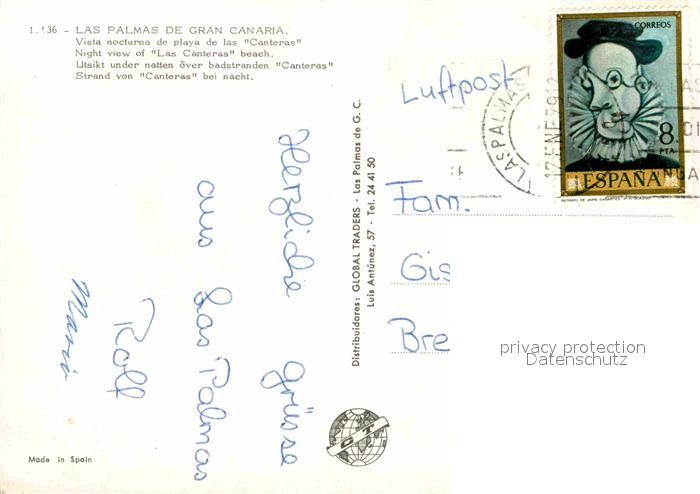 1.136 - LAS PALMAS DE GRAN CANARIA.
Vista nocturna de playa de las "Canteras"
Night view of "Las Canteras" beach.
Utsikt under natten över badstranden "Canteras"
Strand von "Canteras" bei nacht.
Herzliche Grüsse
aus Las Palmas
Rolf
Made in Spain
Distribuidores: GLOBAL TRADERS - Las Palmas de G. C.
Luis Antúnez, 57 - Tel. 24 41 50
GT
Luftpost
LAS PALMAS
17 ENE 79
CORREOS
8
PTA
ESPAÑA
Fam.
Gis
Bre
privacy protection
Datenschutz